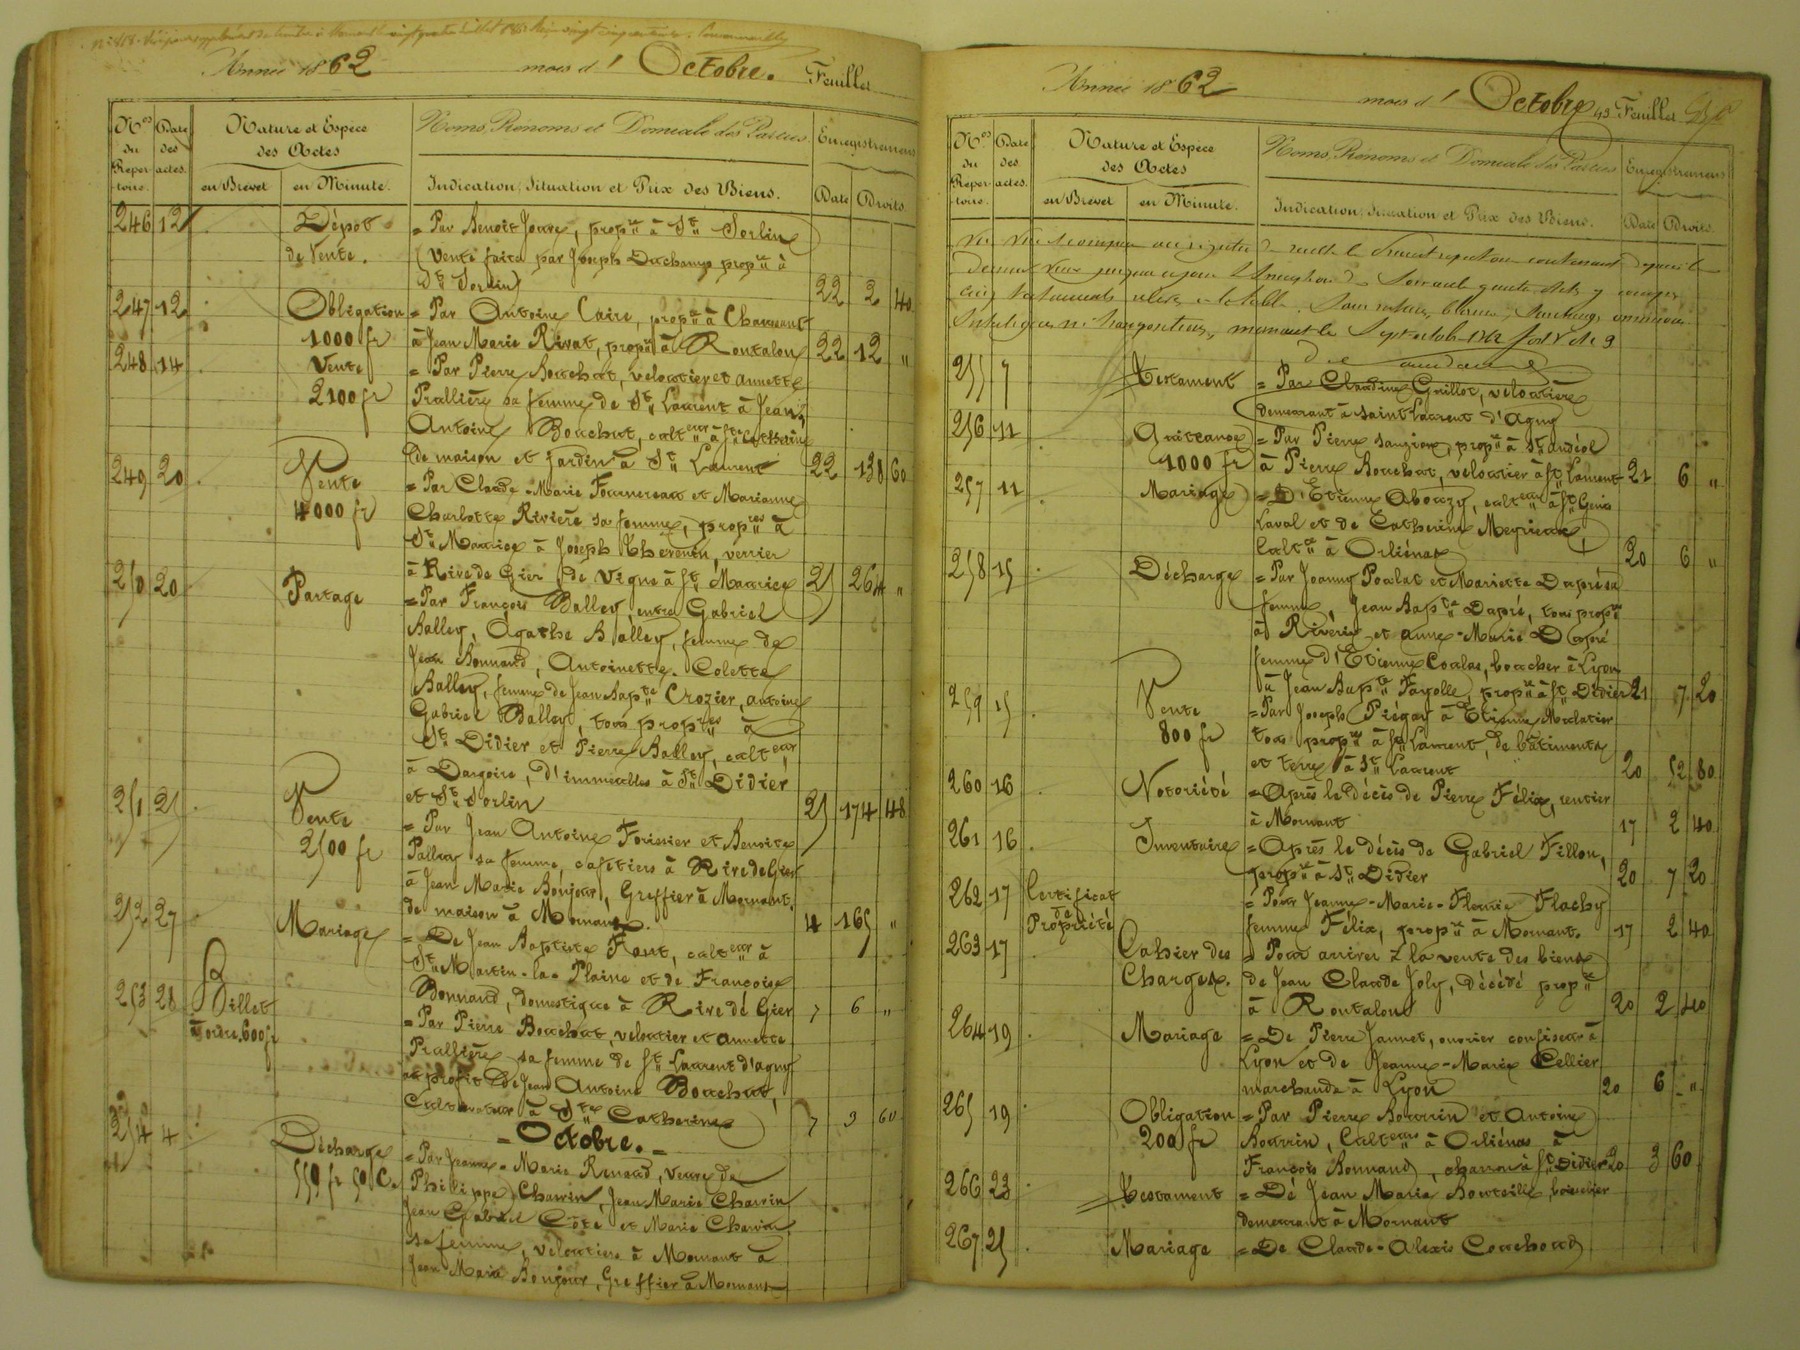 Année 1862 mois d' Octobre. Feuillet
Nos du Repertoire. Date des actes. Nature et Espèce des Actes Noms, Prénoms et Domicile des Parties. Enregistrement
en Brevet en Minute. Indication, Situation et Prix des Biens. Date Droits.
246 12 Dépôt = Par Benoît Joure, propre à St Sorlin
de Vente. (Vente faite par Joseph Duchamp propre à
St Sorlin) 22 2 40
247 12 Obligation = Par Antoine Caire, propre à Chaussant
1000 fr à Jean Marie Rivat, propre à Rontalon 22 12 "
248 14 Vente = Par Pierre Bouchut, veloutier et annette
2100 fr Prallière sa femme de St Laurent à Jean
Antoine Bouchut, culteur à Ste Catherine
de maison et jardin à St Laurent 22 138 60
249 20 Vente = Par Claude-Marie Fournereau et Marianne
4000 fr Charlotte Rivière sa femme, propres à
St Maurice à Joseph Thevenin, verrier
à Rive de Gier de vigne à St Maurice 25 264 "
250 20 Partage = Par François Balley entre Gabriel
Balley, Agathe Balley femme de
Jean Bonnand, Antoinette Colette
Balley, femme de Jean Bapte Crozier, antoine
Gabriel Balley, tous propres à
St Didier et Pierre Balley, culteur
à Dargoire, d'immeubles à St Didier
et St Sorlin 25 174 48
251 25 Vente = Par Jean Antoine Forissier et Benoite
2500 fr Palluy sa femme, cafetiers à Rive de Gier
à Jean Marie Bonjour, Greffier à Mornant.
de maison à Mornant. 4 165 "
252 27 Mariage = De Jean Baptiste Font, culteur à
St Martin-la-Plaine et de Françoise
Bonnand, domestique à Rive dé Gier 7 6 "
253 28 Billet = Par Pierre Bouchut, veloutier et annette
à ordre. 600 fr Prallière sa femme de St Laurent d'agny
au profit de Jean Antoine Bouchut,
Cultivateur à Ste Catherine 7 3 60
= Octobre. =
254 4 Décharge = Par Jeanne-Marie Renaud, Veuve de
559 fr 50 C. Philippe Chavin, Jean Marie Chavin
Jean Gabriel Côte et Marie Chavin
sa femme, veloutiers à Mornant à
Jean Marie Bonjour, Greffier à Mornant
Année 1862 mois d' Octobre 49 Feuillet
Nos du Repertoire. Date des actes. Nature et Espèce des Actes Noms, Prénoms et Domicile des Parties Enregistrement
en Brevet en Minute. Indication, Situation et Prix des Biens. Date Droits.
255 7 Testament = Par Claudine Guillot, veloutière
demeurant à Saint Laurent d'Agny
256 11 Quittance = Par Pierre Sauzion, propre à St andéol
1000 fr à Pierre Bouchut, veloutier à St Laurent 21 6 "
257 11 Mariage = D'Etienne Abouzy, culteur à St Genis
Laval et de Catherine Meyrieux
Cultre à Orliénas 20 6 "
258 15 Décharge = Par Joanny Poulat et Mariette Dupré sa
femme, Jean Bapte Dupré, tous propres
à Riverie et anne-Marie Dupré
femme d'Etienne Coulas, boucher à Lyon
à Jean Bapte Fayolle propre à St Didier 21 7 20
259 15 Vente = Par Joseph Piégay à Etienne Mulatier
800 fr tous propres à St Laurent, de bâtiments
et terre à St Laurent 20 52 80
260 16 Notoriété = Après le décès de Pierre Félix, rentier
à Mornant 17 2 40
261 16 Inventaire = Après le décès de Gabriel Fillon,
propre à St Didier 20 7 20
262 17 Certificat de Propriété = Pour Jeanne-Marie-Fleurie Flachy
femme Félix, propre à Mornant. 17 2 40
263 17 Cahier des = Pour arriver à la vente des biens
Charges. de Jean Claude Joly, décédé propre
à Rontalon 20 2 40
264 19 Mariage = De Pierre Jannet, ouvrier confiseur à
Lyon et de Jeanne-Marie Cellier
marchande à Lyon 20 6 "
265 19 Obligation = Par Pierre Bourrin et Antoine
200 fr Bourrin, Culteurs à Orliénas à
François Bonnand, charron à St Didier 20 3 60
266 23 Testament = Dé Jean Marie Bouteille, boisselier
demeurant à Mornant
267 25 Mariage = De Claude-Alexis Couchoud